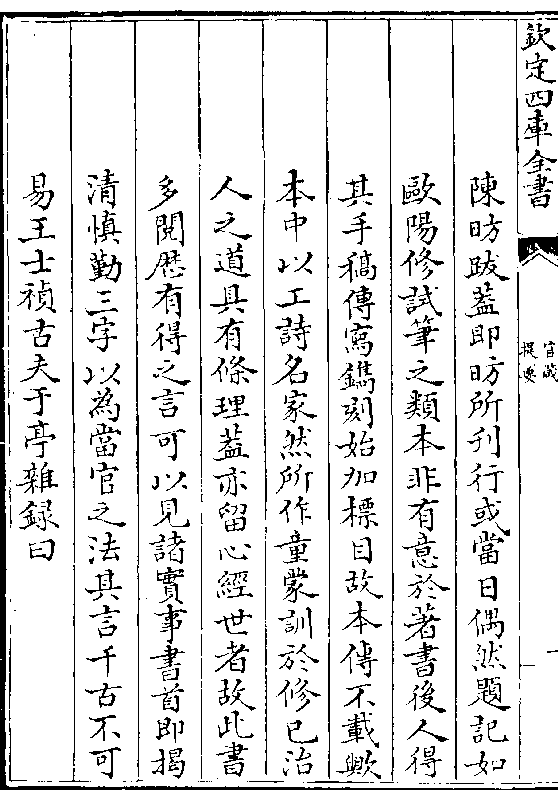 欽定四庫全書
官箴
提要
陳昉跋蓋即昉所刋行或當日偶然題記如
歐陽修試筆之類本非有意於著書後人得
其手稿傳寫鐫刻始加標目故本傳不載歟
本中以工詩名家然所作童蒙訓於修己治
人之道具有條理蓋亦留心經世者故此書
多閱歴有得之言可以見諸實事書首即揭
清慎勤三字以為當官之法其言千古不可
易王士禎古夫于亭雜録曰